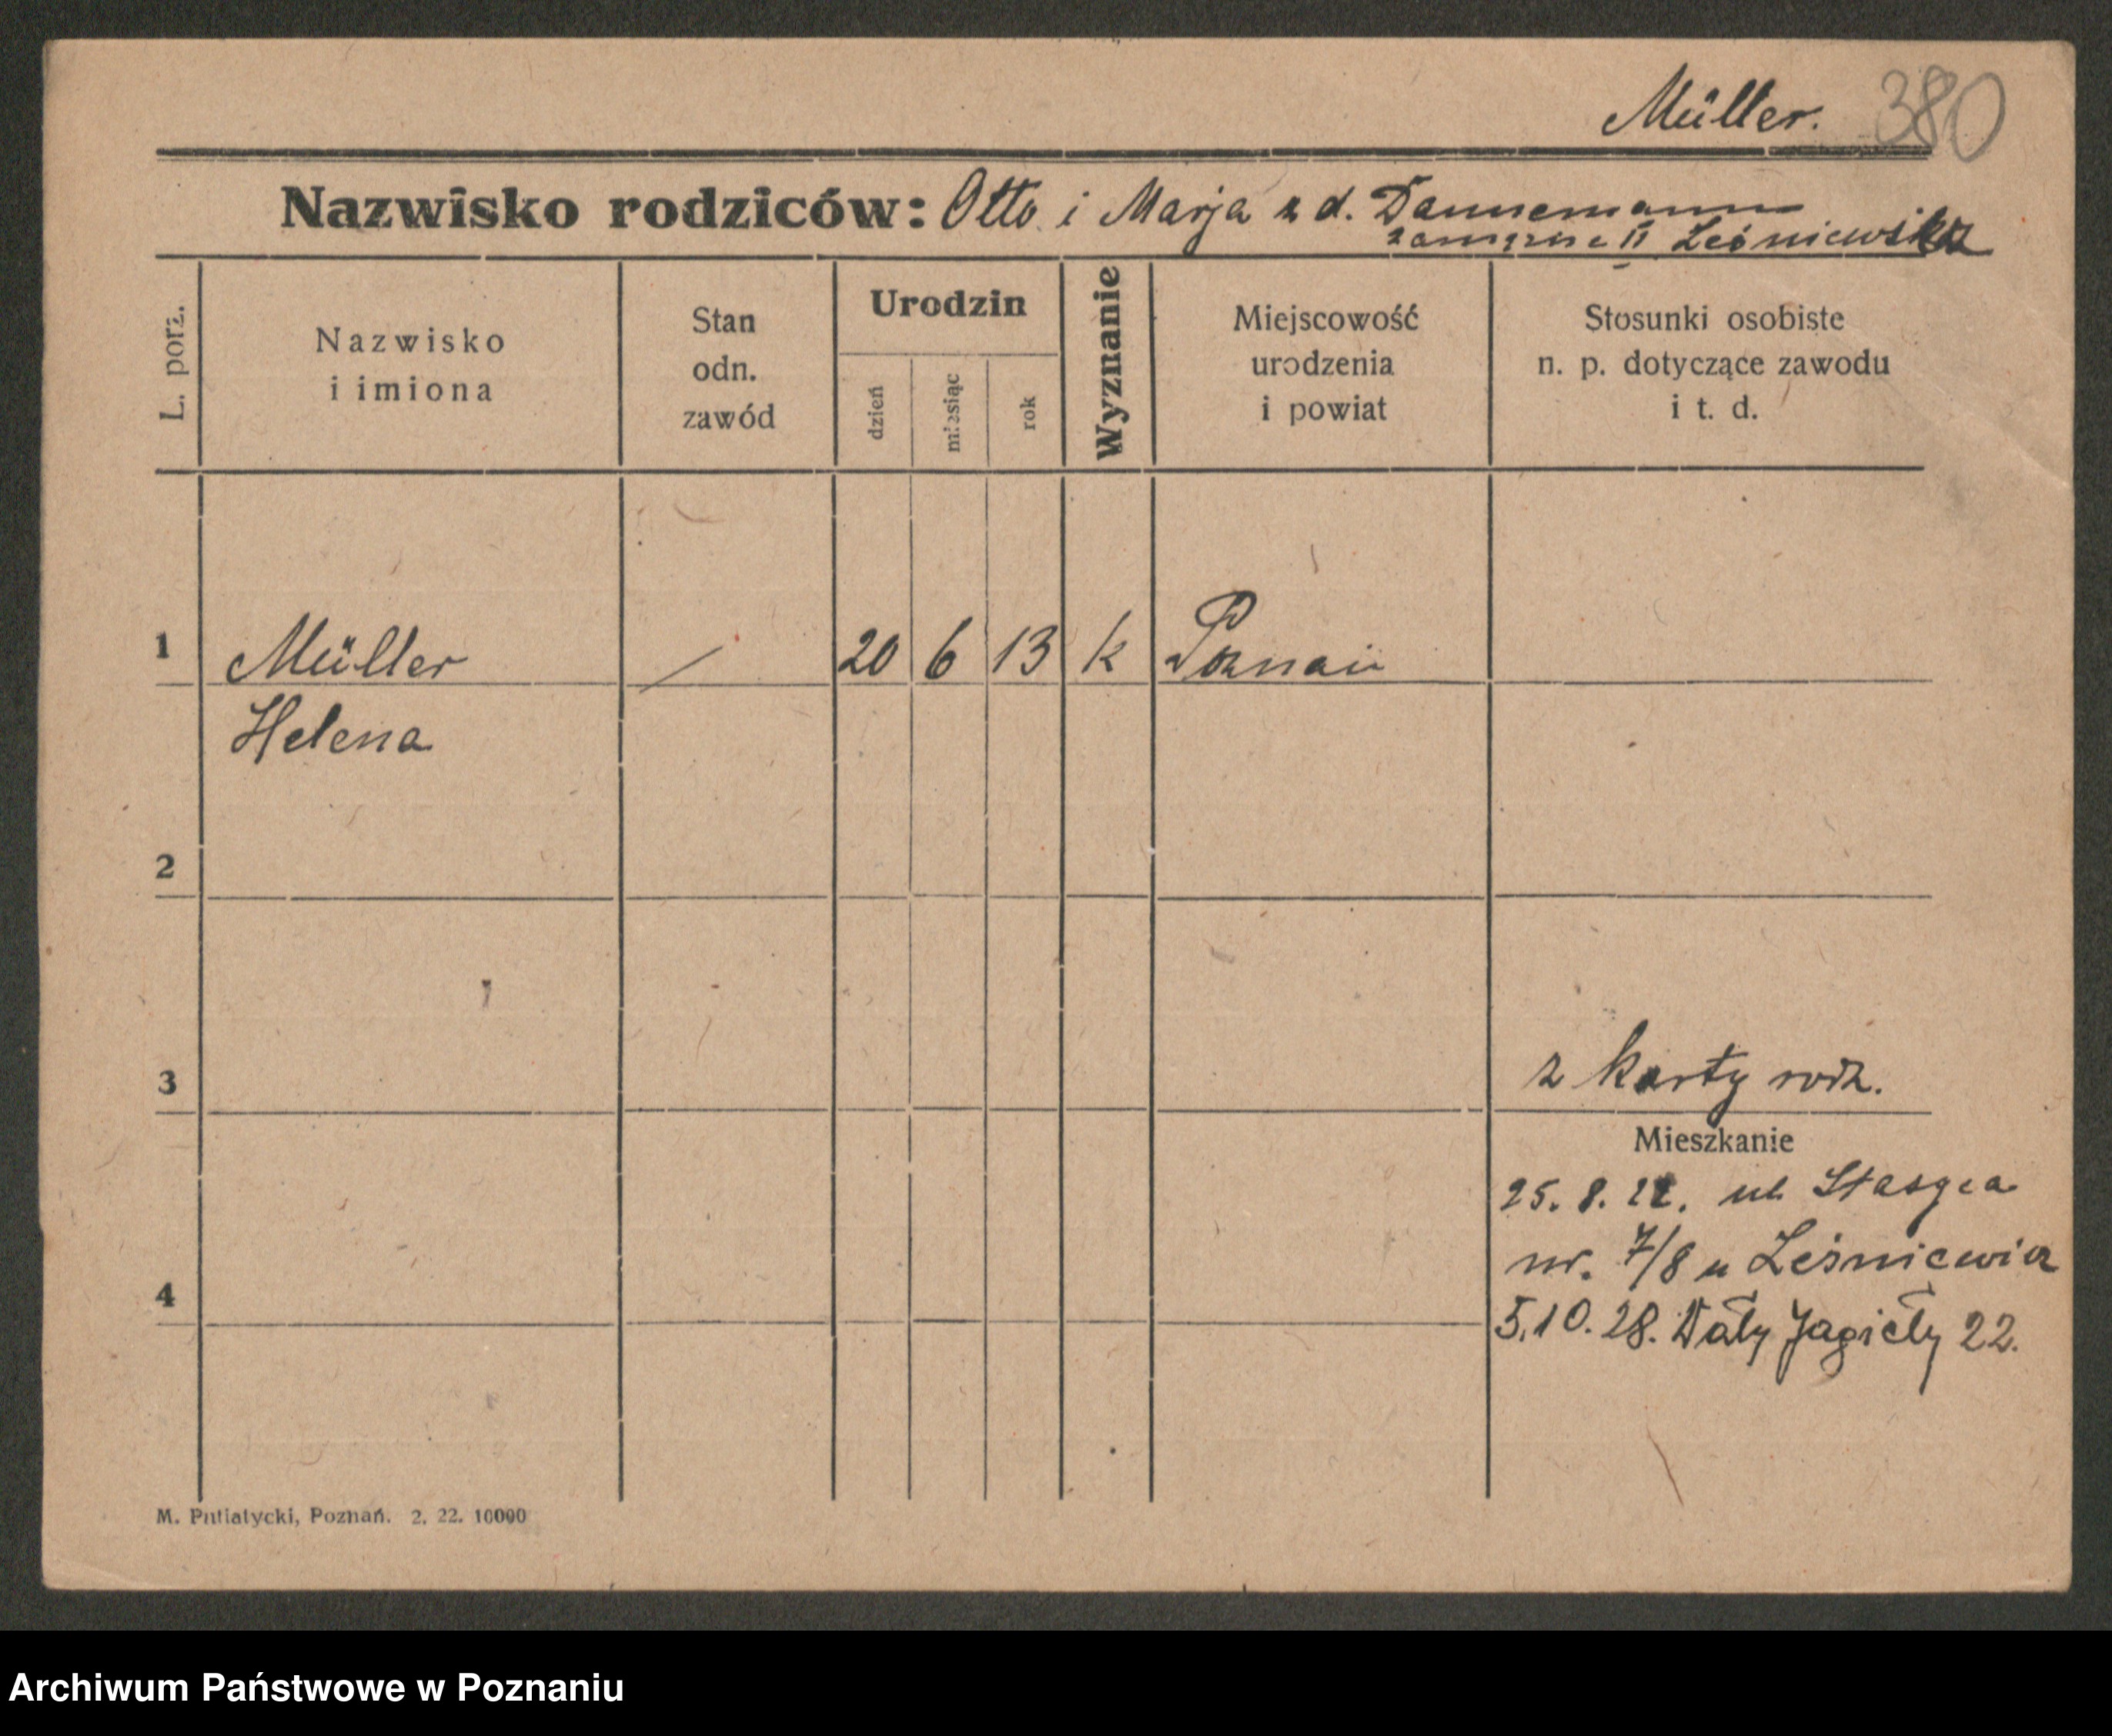 Müller. 380
Nazwisko rodziców: Otto i Marja z d. Dannemann
zamężne II Leśniewska
L. porz.
Nazwisko
i imiona
Stan
odn.
zawód
Urodzin
dzień
miesiąc
rok
Wyznanie
Miejscowość
urodzenia
i powiat
Stosunki osobiste
n. p. dotyczące zawodu
i t. d.
1 Müller / 20 6 13 k Poznań
Helena
2
3
z karty rodz.
Mieszkanie
25. 8. 22. ul Stasyca
nr. 7/8 u Leśniewicz
4
5.10.28. Wały Jagiełły 22.
M. Putiatycki, Poznań. 2. 22. 10000
Archiwum Państwowe w Poznaniu